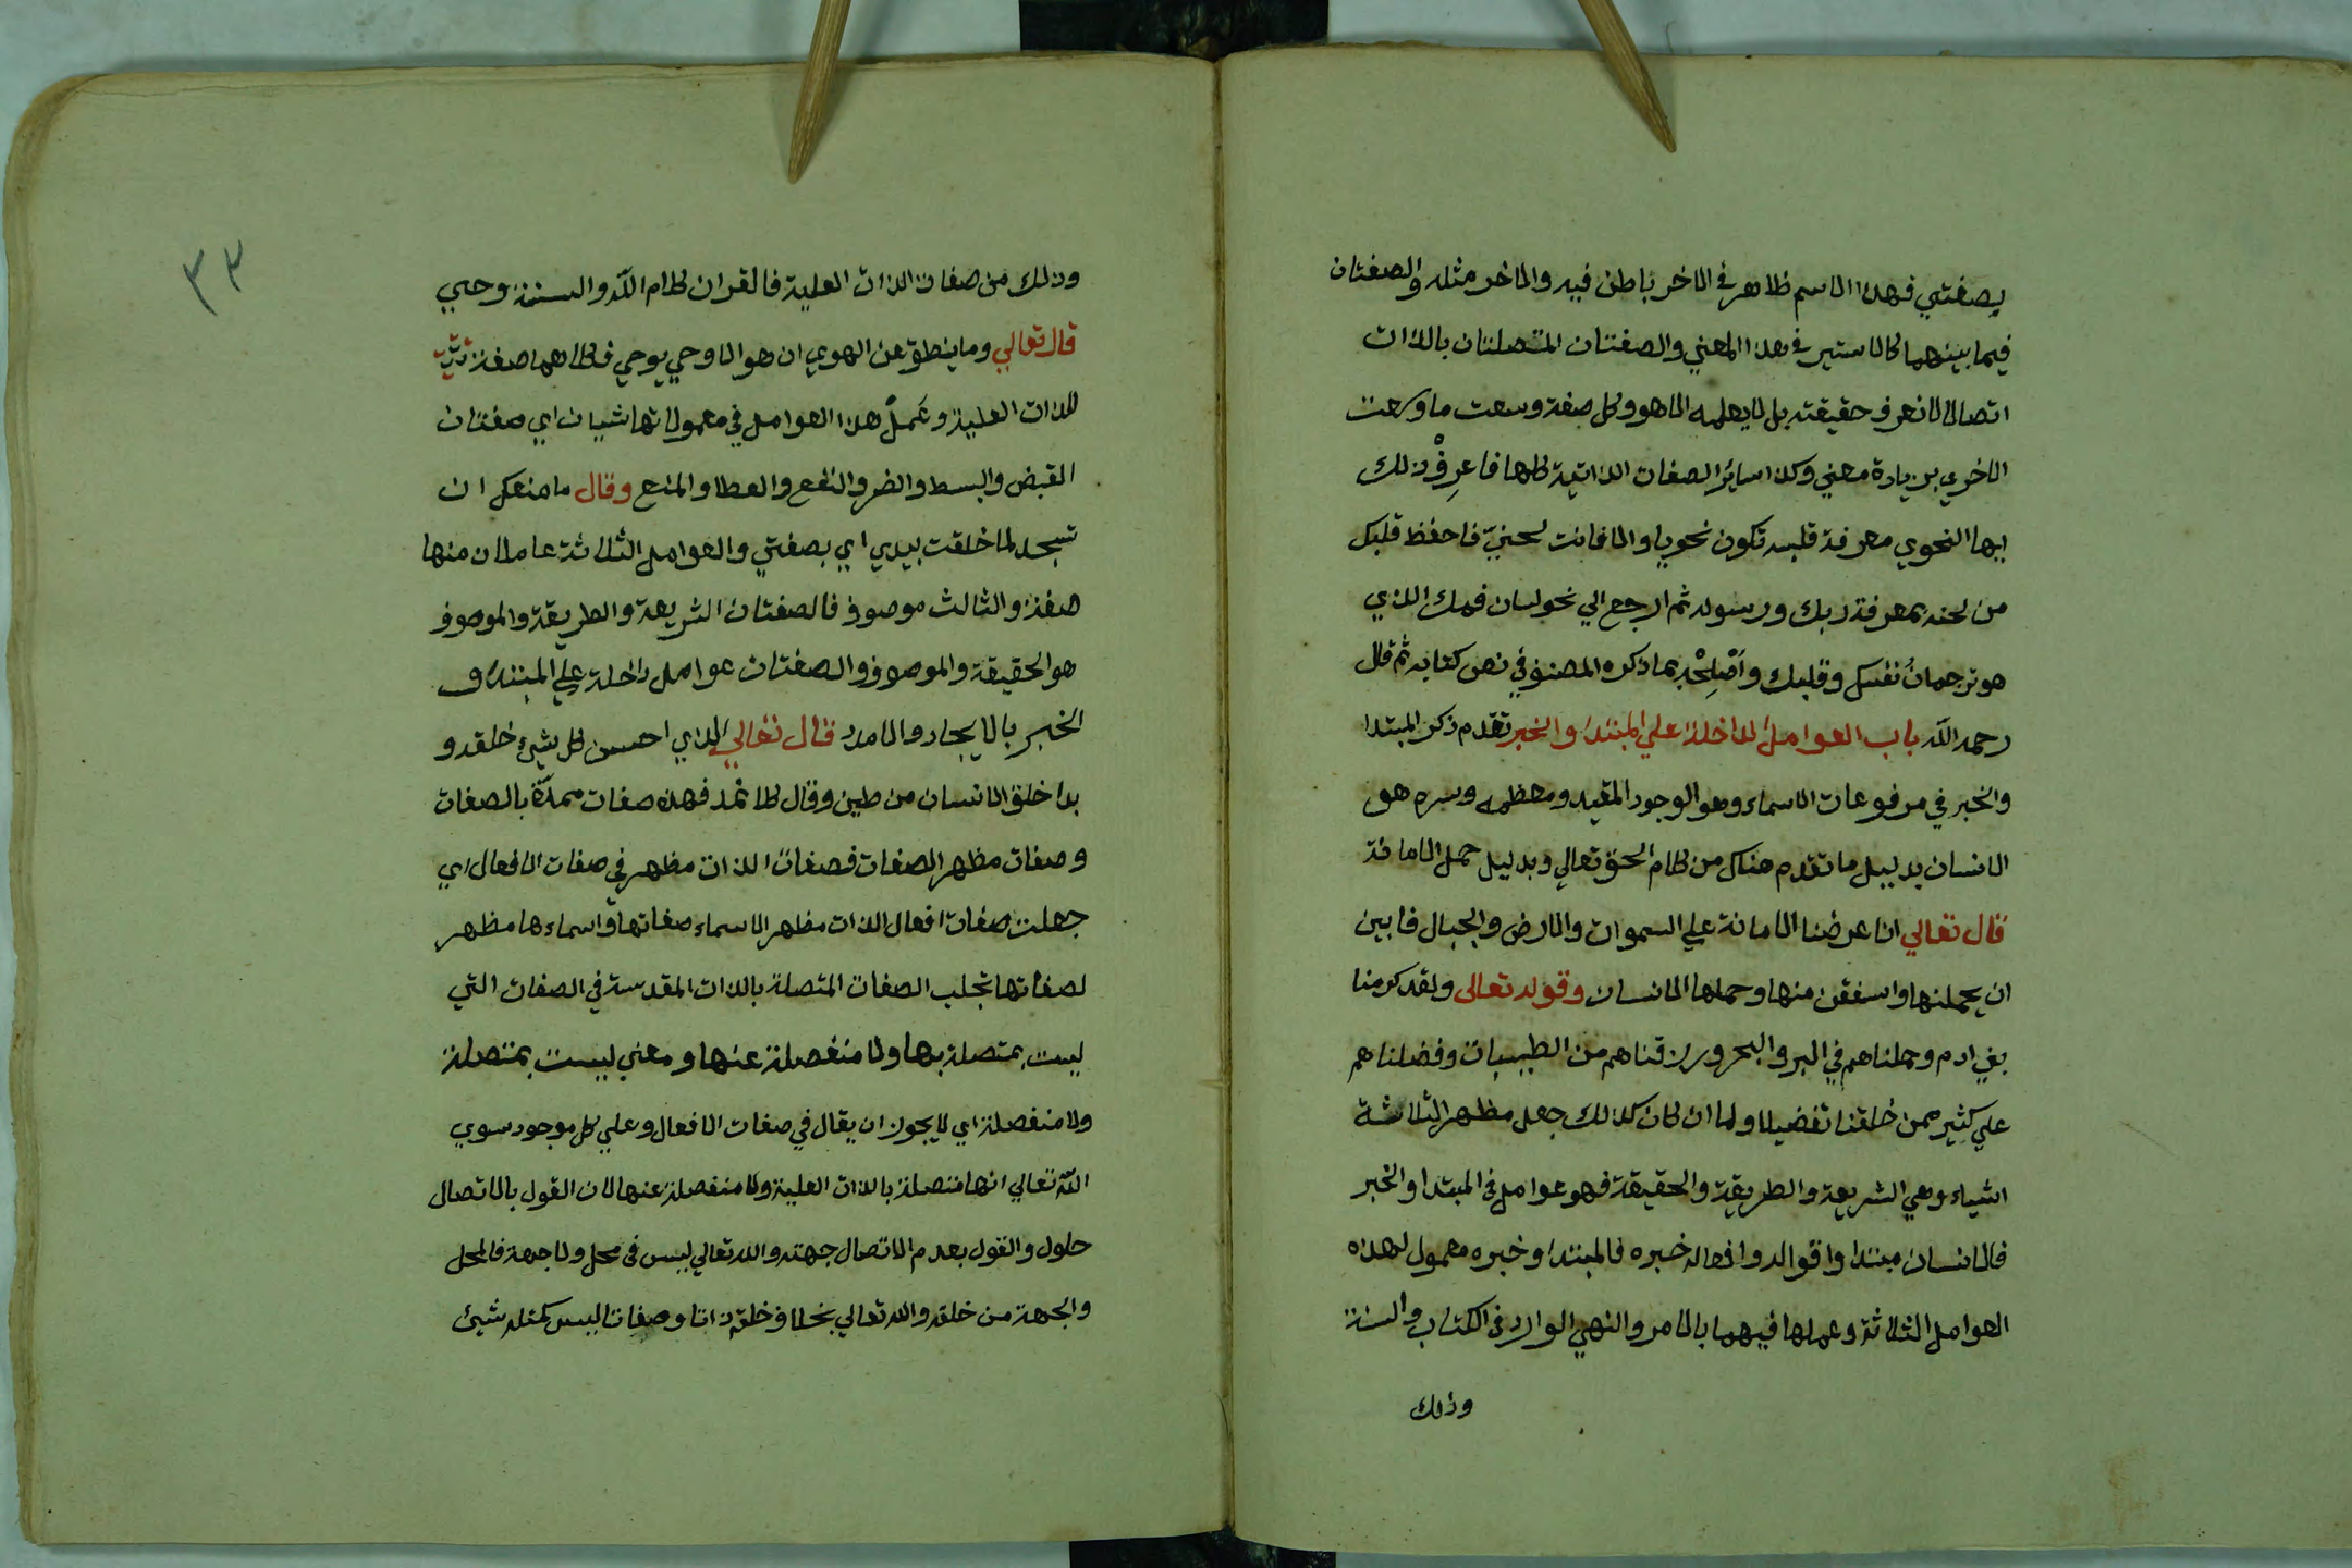 بصفتي فهذا الاسم ظاهر في الاخر باطن فيه والاخر مثله والصفتان
فيما بينهما كالاسمين في هذا المعني والصفتان المتصلتان بالذات
اتصالا لانعرف حقيقته بل لايعلمه الا هو وكل صفة وسعت ما وسعت
الاخري بزيادة معني وكذا سائر الصفات الذاتية كلها فاعرِفْ ذلك
ايها النحوي معرفة قلبيه تكون نحويا والا فانت لحنيّ فاحفظ قلبك
من لحنه بمعرفة ربك ورسوله ثم ارجع الي نحو لسان فمك الذي
هو ترجمانُ نفسك وقلبك واَصْلِحْه بما ذكره المصنف في نص كتابه ثم قال
رحمه الله باب العوامل الداخلة علي المبتدا والخبر تقدم ذكر المبتدا
والخبر في مرفوعات الاسماء وهو الوجود المقيد ومعظمه وسره هو
الانسان بدليل ما تقدم هناك من كلام الحق تعالي وبدليل حمل الامانة
قال تعالي انا عرضنا الامانة علي السموات والارض والجبال فابين
ان يحملنها واسفقن منها وحملها الانسان وقوله تعالى ولقد كرمنا
بني ادم وحملناهم في البر والبحر ورزقناهم من الطيبات وفضلناهم
علي كثير ممن خلقنا تفضيلا ولما ان كان كذلك جعل مظهر الثلاثة
اشياء وهي الشريعة والطريقة والحقيقة فهو عوامل في المبتدا والخبر
فالانسان مبتدا واقواله وافعاله خبره فالمبتدا وخبره معمول لهذه
العوامل الثلاثة وعملها فيهما بالامر والنهي الوارد في الكتاب والسنة
وذلك
٣٣
وذلك من صفات الذات العلية فالقران كلام الله والسنة وحيي
قال تعالي وما ينطق عن الهوي ان هو الا وحي يوحي فكلاهما صفة
للذات العلية وعَمَلُ هذا العوامل في معمولاتها شيان اي صفتان
القبض والبسط والضر والنفع والعطا والمنع وقال ما منعك ان
تسجد لما خلقت بيدي اي بصفتي والعوامل الثلاثة عاملان منها
صفة والثالث موصوف فالصفتان الشريعة والطريقة والموصوف
هو الحقيقة والموصوف والصفتان عوامل داخلة علي المبتدا و
الخبر بالايجاد والامدد قال تعالي الذي احسن كل شيء خلقه و
بدا خلق الانسان من طين وقال كلا نمد فهذه صفات ممدّة بالصفات
وصفات مظهر الصفات فصفات الذات مظهر في صفات الافعال اي
جعلت صفات افعال الذات مظهر الاسماء صفاتها واسماءها مظهر
لصفاتها تجلب الصفات المتصلة بالذات المقدسة في الصفات التي
ليست بمتصلة بها ولا منفصلة عنها ومعني ليست بمتصلة
ولا منفصلة اي لا يجوز ان يقال في صفات الافعال وعلي كل موجود سوي
الله تعالي انها متصلة بالذات العلية ولا منفصلة عنها لان القول بالاتصال
حلول والقول بعدم الاتصال جهته والله تعالي ليس في محل ولا جهة فالمحل
والجهة من خلقه والله تعالي بخلاف خلقه ذاتا وصفات ليس كمثله شيئ